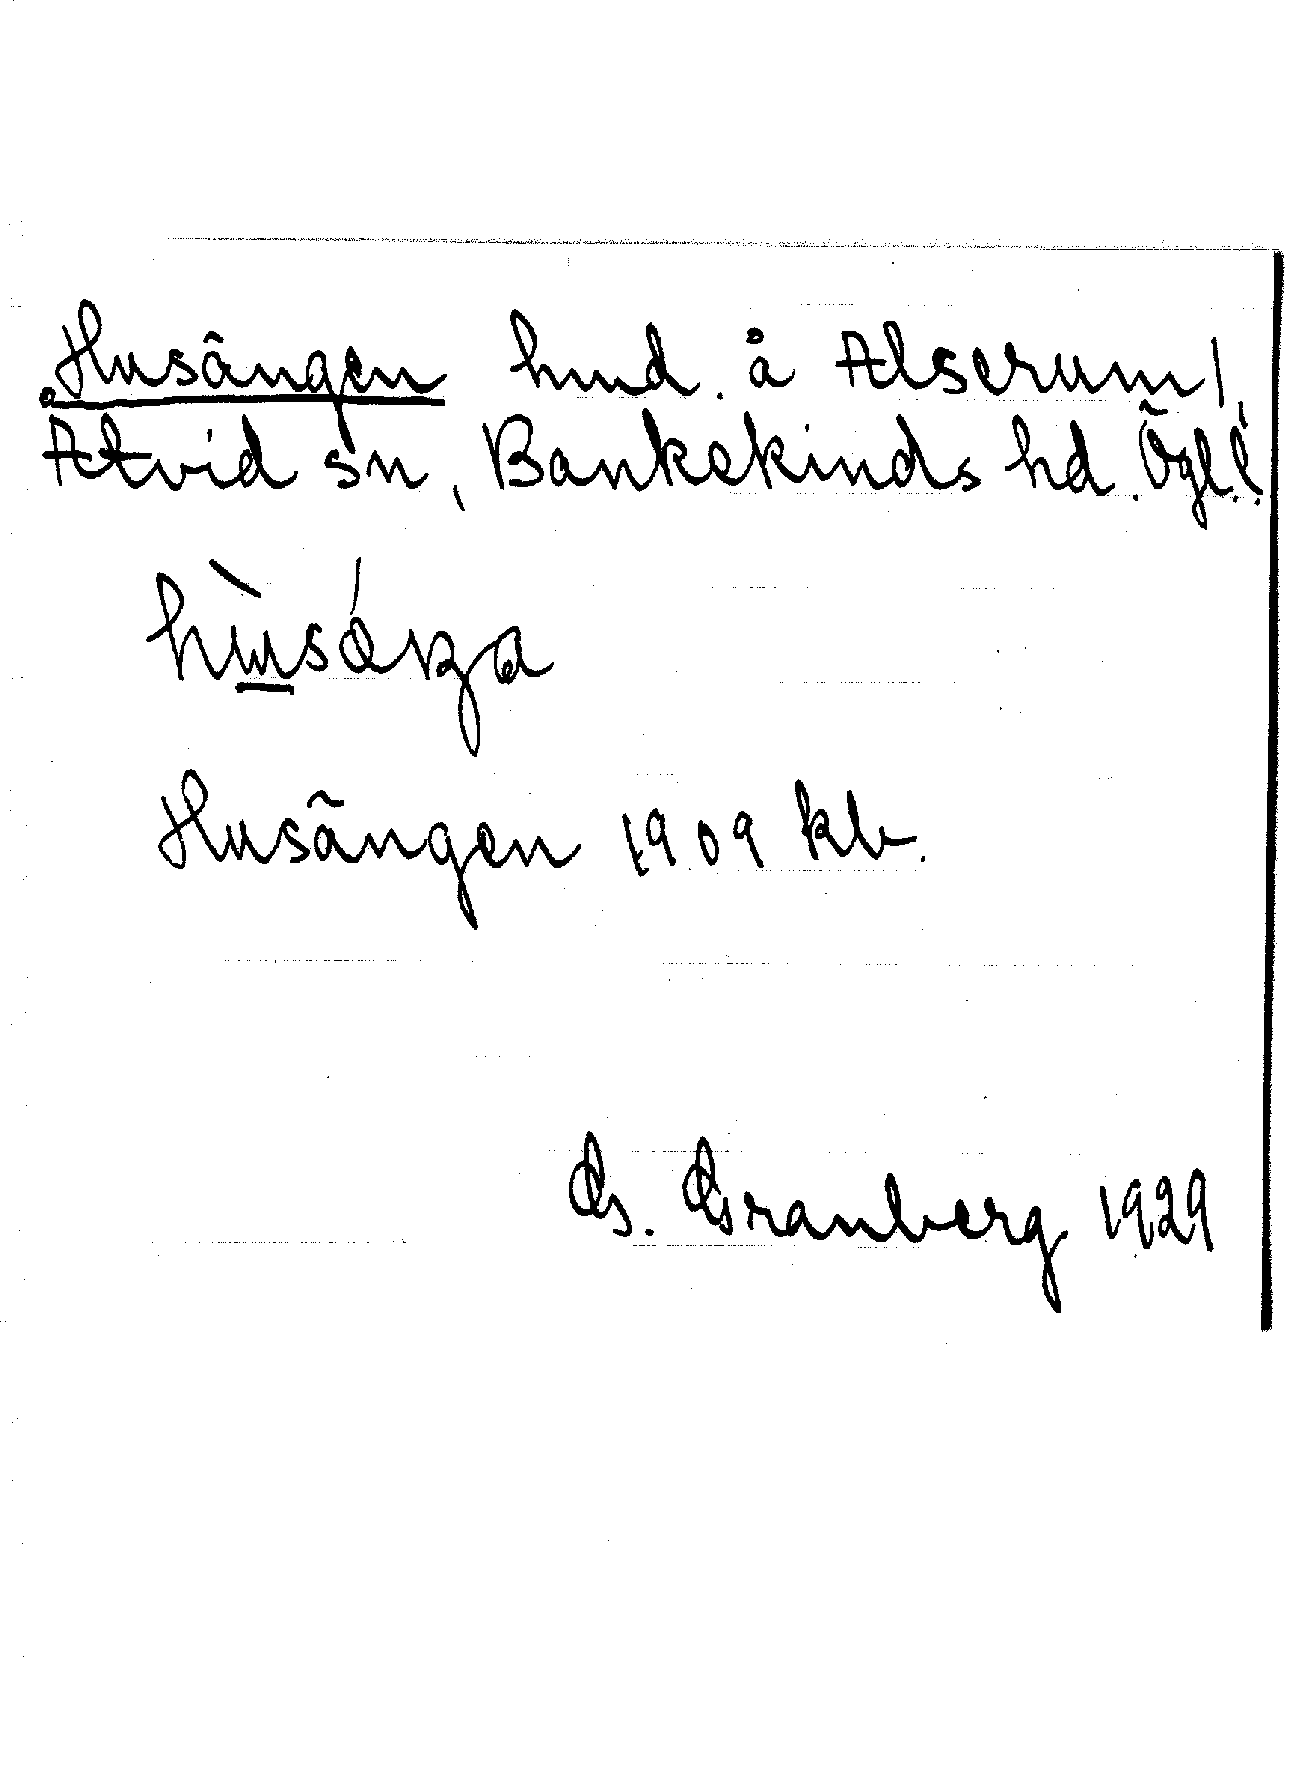 Husängen hmd. å Alserum!,
Åtvid sn, Bankekinds hd. Ögl.!
Husängen 1909 kb.
G. Granberg 1929